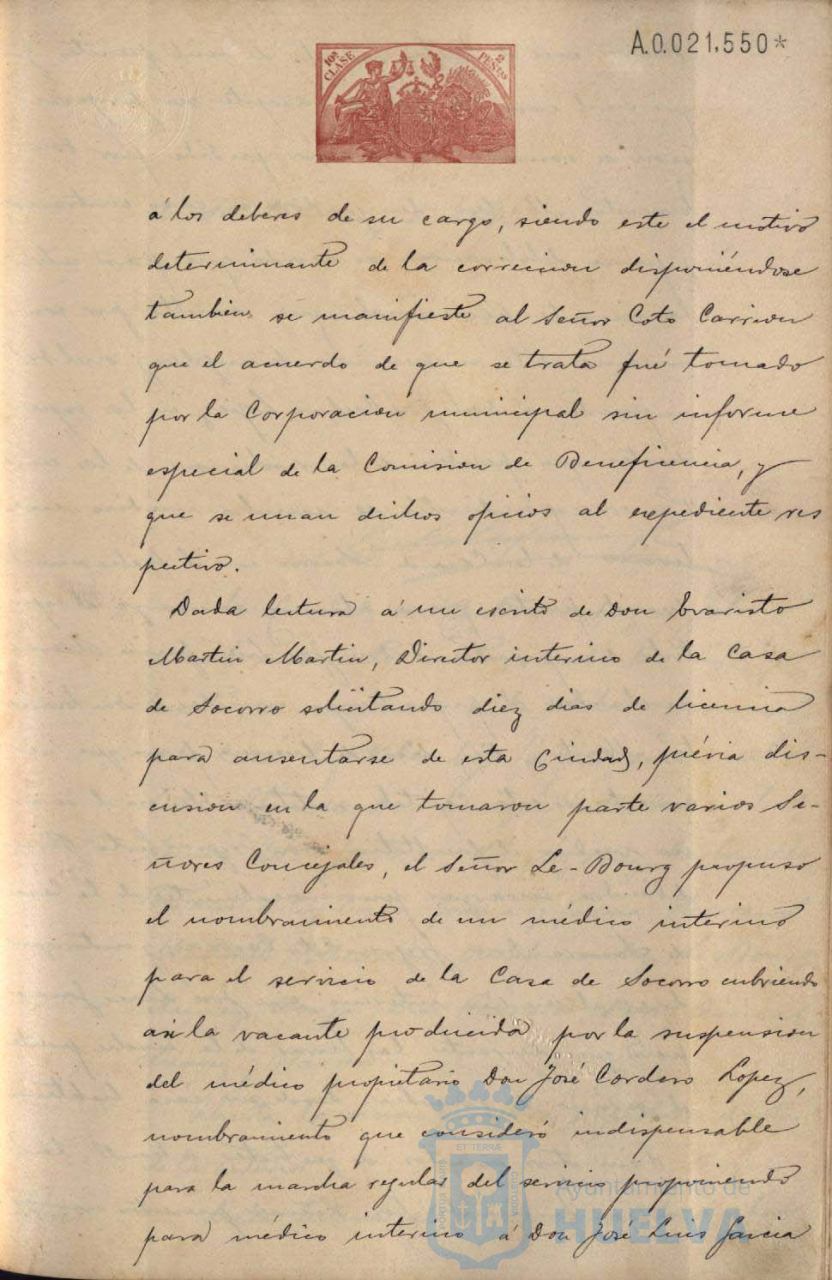 A.0.021,550*
10ª CLASE
2 PESTAS
á los deberes de su cargo, siendo este el motivo
determinante de la correccion disponiéndose
tambien se manifieste al Señor Coto Carrion
que el acuerdo de que se trata fué tomado
por la Corporacion municipal sin informe
especial de la Comision de Beneficencia, y
que se unan dichos oficios al expediente res
pectivo.
Dada lectura á un escrito de Don Evaristo
Martin Martin, Director interino de la Casa
de Socorro solicitando diez dias de licencia
para ausentarse de esta Ciudad, prévia dis-
cusion en la que tomaron parte varios Se-
ñores Concejales, el Señor Le-Bourg propuso
el nombramiento de un médico interino
para el servicio de la Casa de Socorro cubriendo
asi la vacante producida por la suspension
del médico propietario Don José Cordero Lopez,
nombramiento que consideró indispensable
para la marcha regular del servicio proponiendo
para médico interino á Don José Luis Garcia
Ayuntamiento de
HUELVA